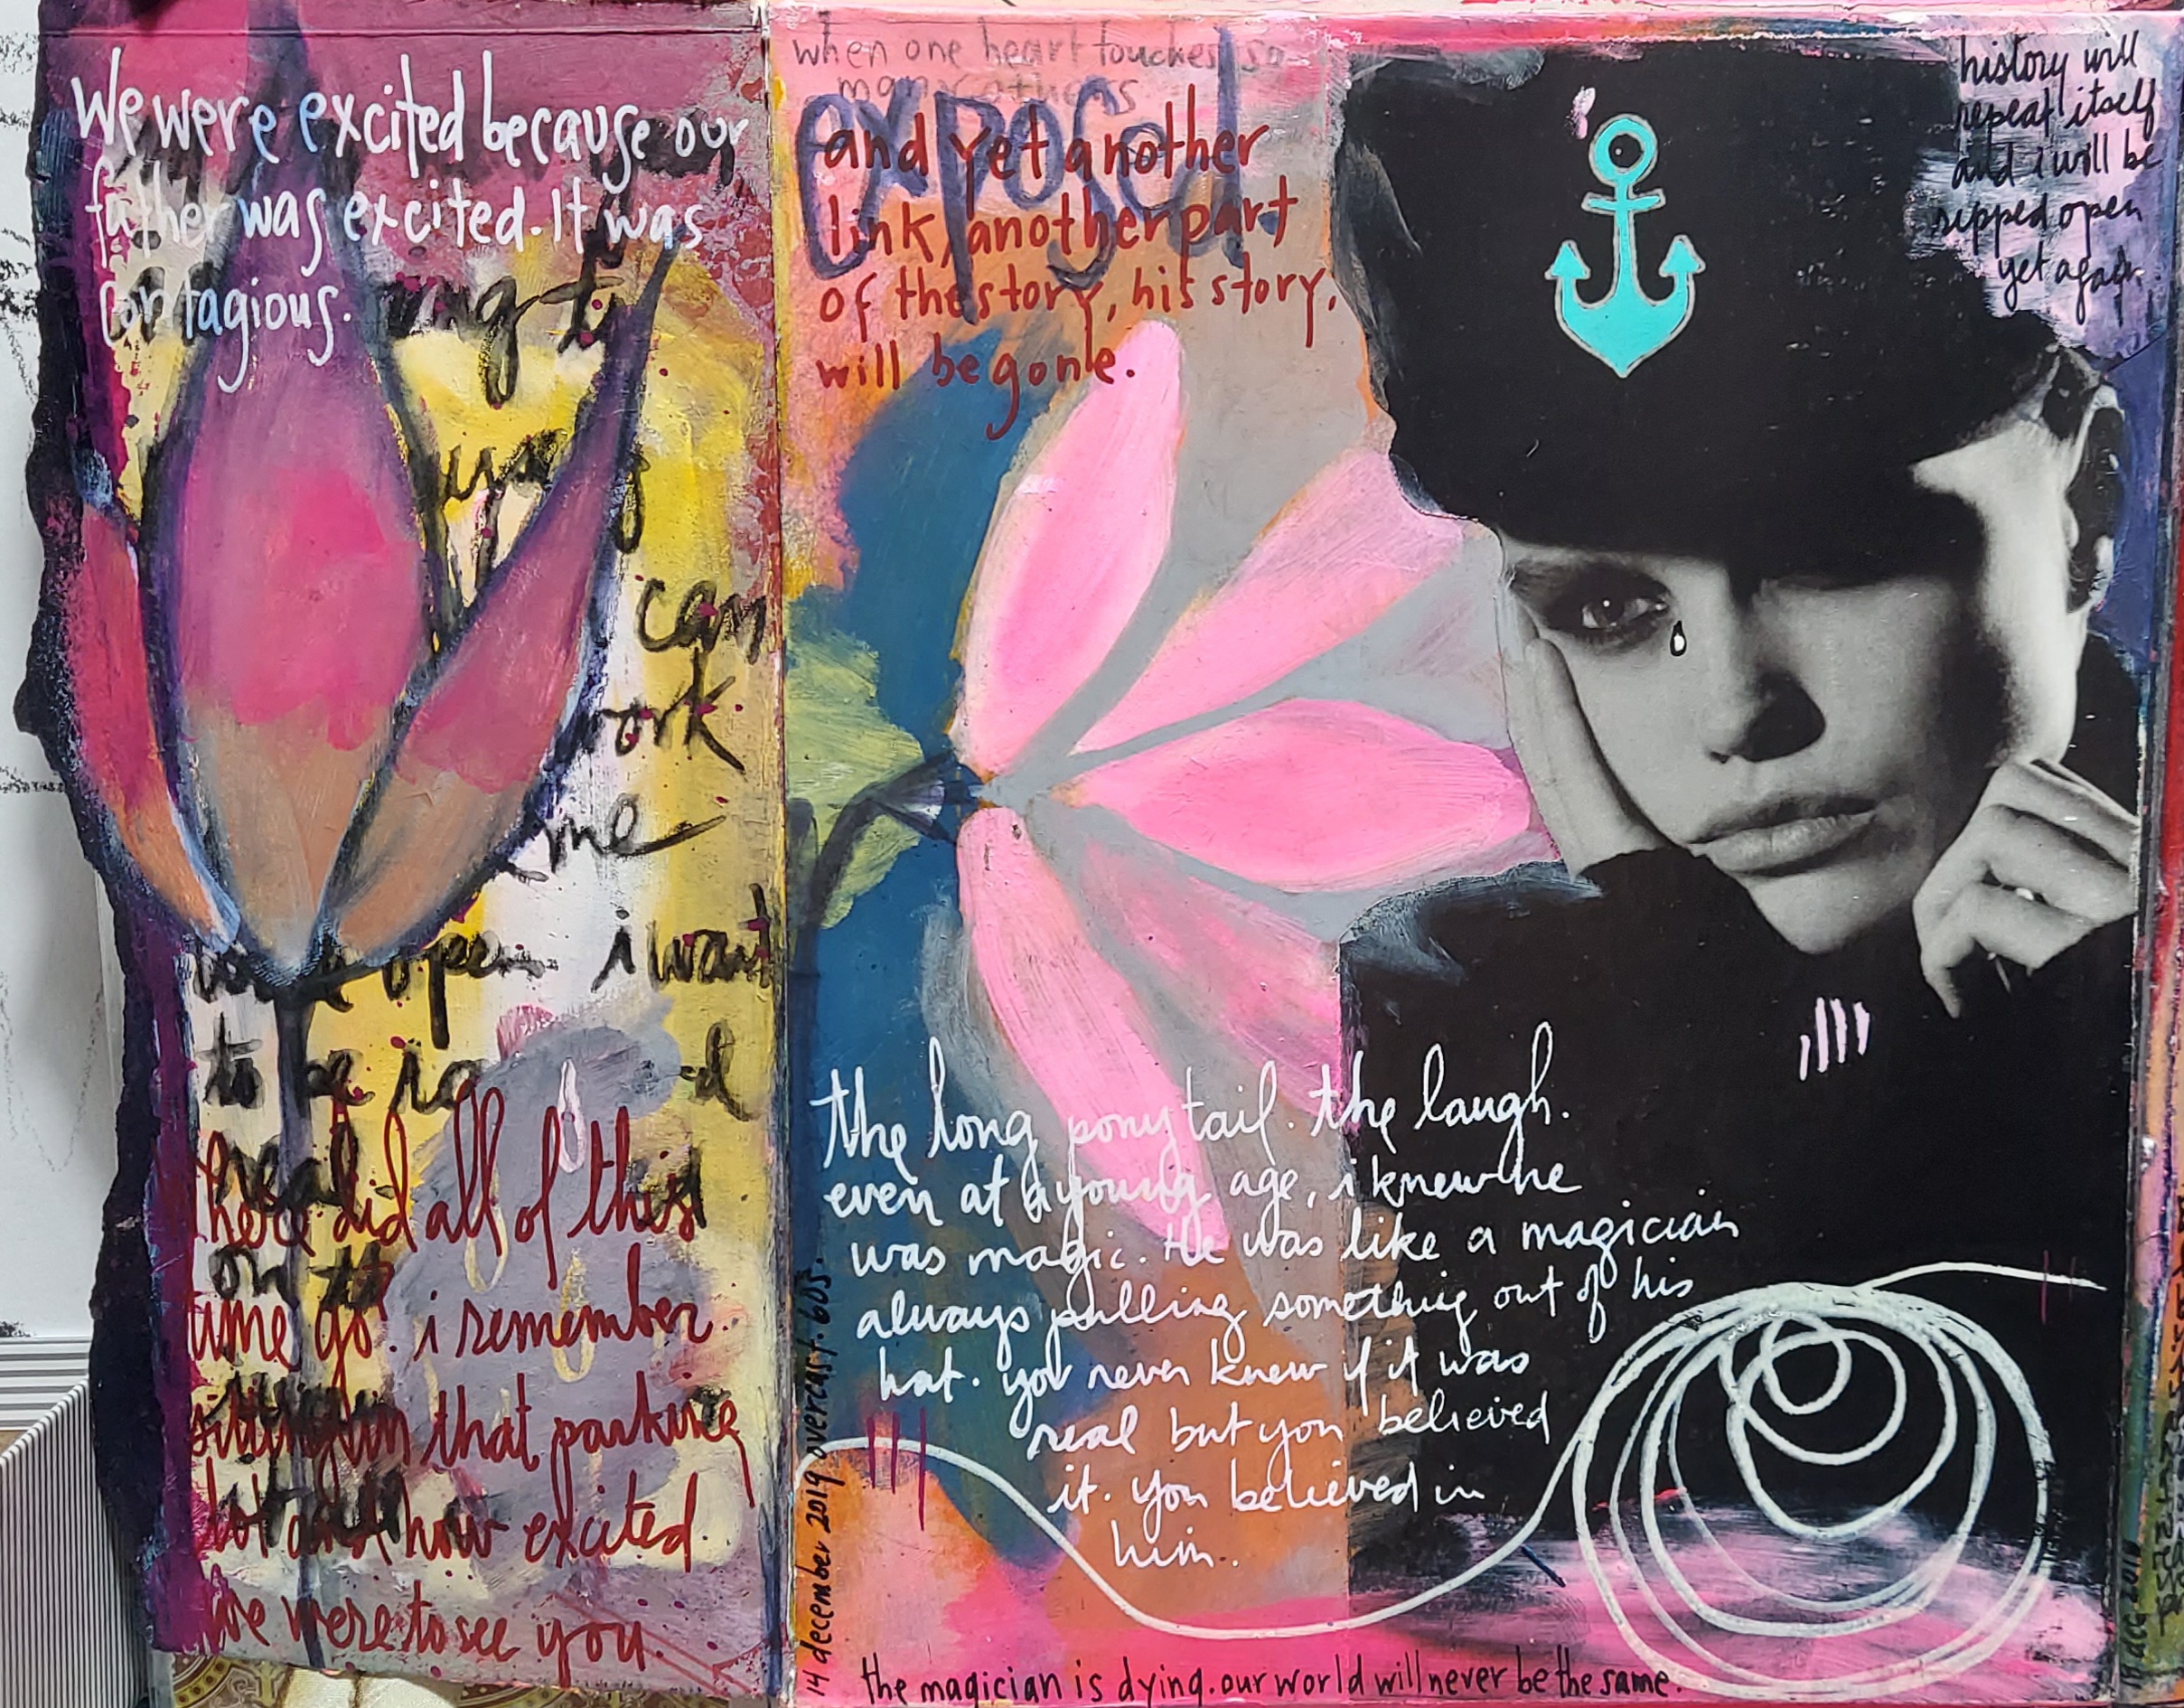 We were excited because our
father was excited. It was
contagious.
can
work
me
open i want
to be
real
on
here did all of this
time go? i remember
sitting in that parking
lot and how excited
we were to see you.
when one heart touches so
many others
exposed
and yet another
link, another part
of the story, his story,
will be gone.
history will
repeat itself
and i will be
ripped open
yet again.
the long ponytail. the laugh.
even at a young age, i knew he
was magic. He was like a magician
always pulling something out of his
hat. you never knew if it was
real but you believed
it. you believed in
him.
14 december 2019 overcast. 60s.
the magician is dying. our world will never be the same.